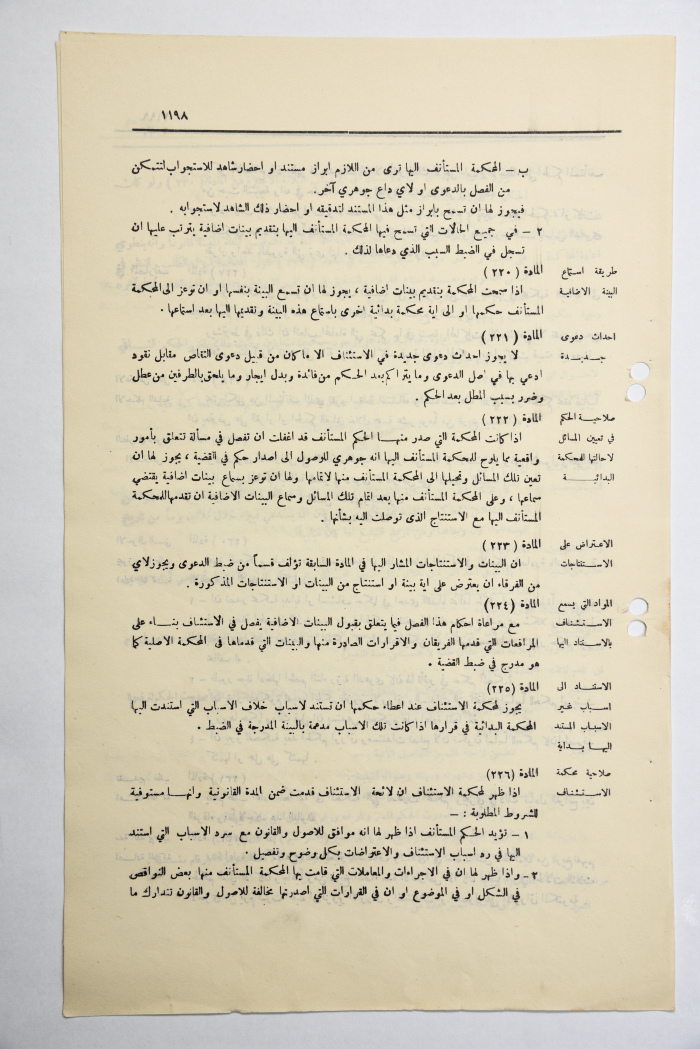 ١١٩٨
ب - المحكمة المستأنف اليها ترى من اللازم ابراز مستند او احضار شاهد للاستجواب لتتمكن
من الفصل بالدعوى او لاي داع جوهري آخر.
فيجوز لها ان تسمح بابراز مثل هذا المستند لتدقيقه او احضار ذلك الشاهد لاستجوابه .
٢ - في جميع الحالات التي تسمح فيها المحكمة المستأنف اليها بتقديم بينات اضافية يترتب عليها ان
تسجل في الضبط السبب الذي دعاها لذلك .
طريقة استماع المادة ( ٢٢٠ )
البينة الاضافية اذا سمحت المحكمة بتقديم بينات اضافية ، يجوز لها ان تسمع البينة بنفسها او ان توعز الى المحكمة
المستأنف حكمها او الى اية محكمة بدائية اخرى باستماع هذه البينة وتقديمها اليها بعد استماعها .
احداث دعوى المادة ( ٢٢١ )
جديدة لا يجوز احداث دعوى جديدة في الاستئناف الا ما كان من قبيل دعوى التقاص مقابل نقود
ادعي بها في اصل الدعوى وما يتراكم بعد الحكم من فائدة وبدل ايجار وما يلحق بالطرفين من عطل
وضرر بسبب المطل بعد الحكم .
صلاحية الحكم المادة ( ٢٢٢ )
في تعيين المسائل اذا كانت المحكمة التي صدر منها الحكم المستأنف قد اغفلت ان تفصل في مسألة تتعلق بأمور
لاحالتها للمحكمة واقعية مما يلوح للمحكمة المستأنف اليها انه جوهري للوصول الى اصدار حكم في القضية ، يجوز لها ان
البدائية تعين تلك المسائل وتحيلها الى المحكمة المستأنف منها لاتمامها ولها ان توعز بسماع بينات اضافية يقتضي
سماعها ، وعلى المحكمة المستأنف منها بعد اتمام تلك المسائل وسماع البينات الاضافية ان تقدمها للمحكمة
المستأنف اليها مع الاستنتاج الذي توصلت اليه بشأنها .
الاعتراض على المادة ( ٢٢٣ )
الاستنتاجات ان البينات والاستنتاجات المشار اليها في المادة السابقة تؤلف قسماً من ضبط الدعوى ويجوز لاي
من الفرقاء ان يعترض على اية بينة او استنتاج من البينات او الاستنتاجات المذكورة .
المواد التي يسمع المادة (٢٢٤)
الاستئناف مع مراعاة احكام هذا الفصل فيما يتعلق بقبول البينات الاضافية يفصل في الاستئناف بناء على
بالاستناد اليها المرافعات التي قدمها الفريقان والاقرارات الصادرة منها والبينات التي قدماها في المحكمة الاصلية كما
هو مدرج في ضبط القضية .
الاستناد الى المادة (٢٢٥)
اسباب غير يجوز لمحكمة الاستئناف عند اعطاء حكمها ان تستند لاسباب خلاف الاسباب التي استندت اليها
الاسباب المستند المحكمة البدائية في قرارها اذا كانت تلك الاسباب مدعمة بالبينة المدرجة في الضبط .
اليها بداية
صلاحية محكمة المادة (٢٢٦)
الاستئناف اذا ظهر لمحكمة الاستئناف ان لائحة الاستئناف قدمت ضمن المدة القانونية وانها مستوفية
للشروط المطلوبة : -
١ - تؤيد الحكم المستأنف اذا ظهر لها انه موافق للاصول والقانون مع سرد الاسباب التي استند
اليها في رد اسباب الاستئناف والاعتراضات بكل وضوح وتفصيل .
٢ - واذا ظهر لها ان في الاجراءات والمعاملات التي قامت بها المحكمة المستأنف منها بعض النواقص
في الشكل او في الموضوع او ان في القرارات التي اصدرتها مخالفة للاصول والقانون تتدارك ما